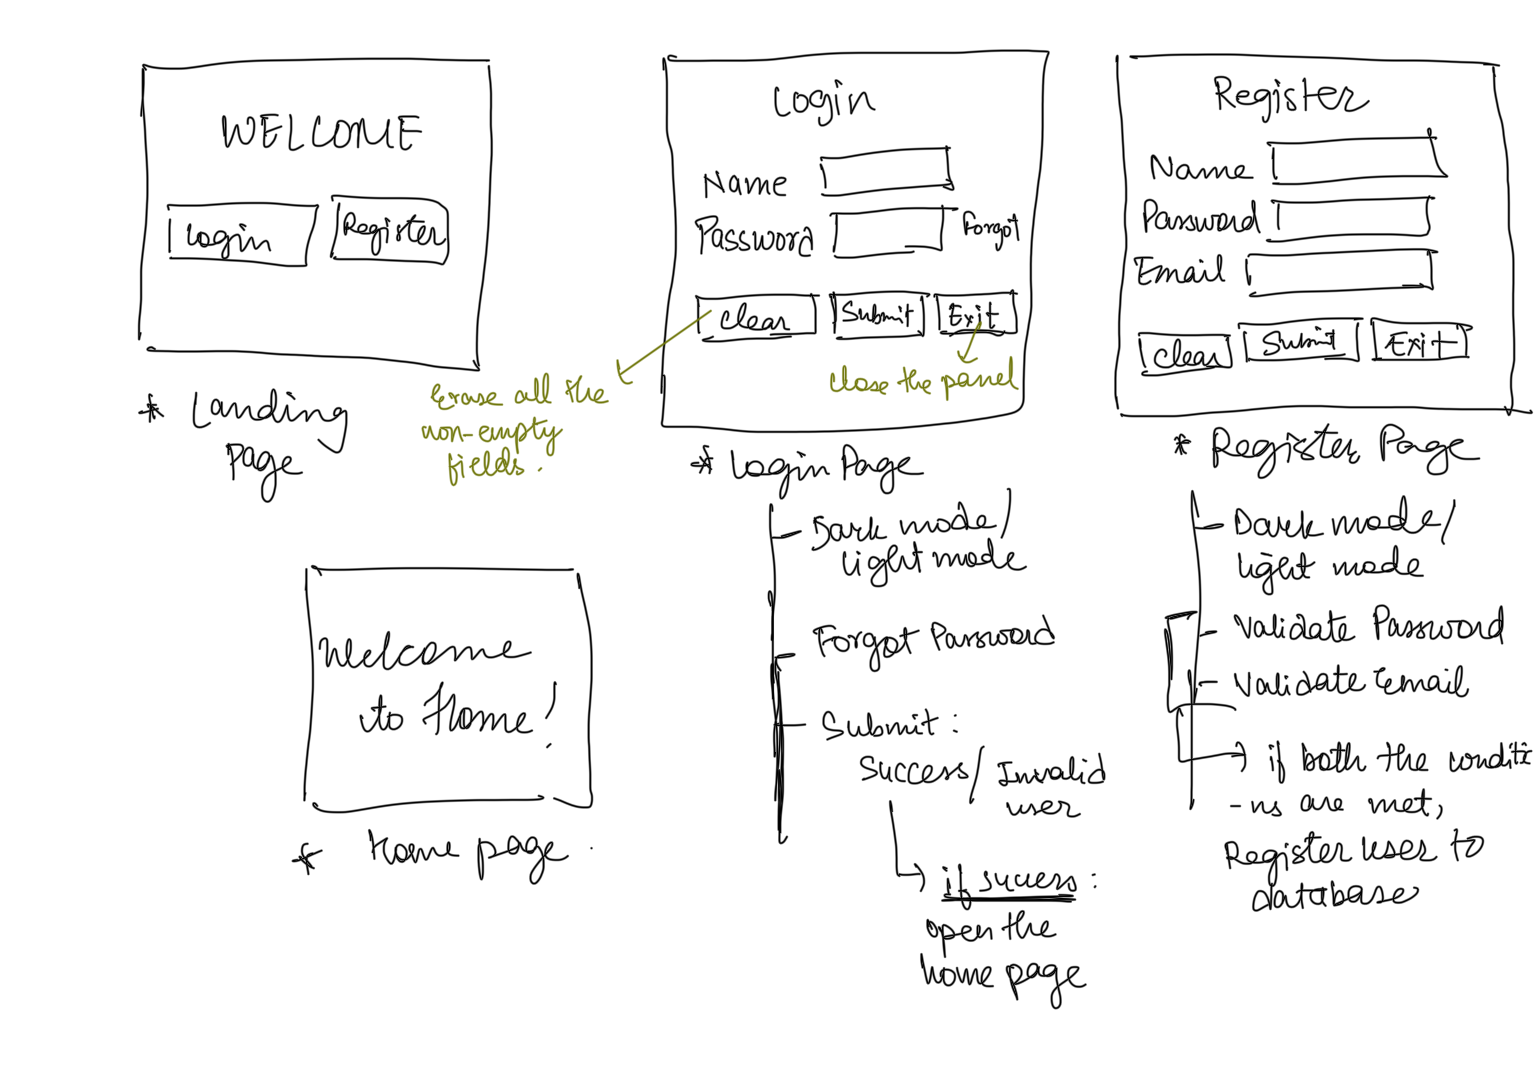 WELCOME
Login
Register
* Landing
Page
Login
Name
Password
Forgot
Clear
Submit
Exit
Erase all the
non-empty
fields.
close the panel
* Login Page
Dark mode/
light mode
Forgot Password
Submit:
Success/ Invalid
user
if success:
open the
home page
Register
Name
Password
Email
Clear
Submit
Exit
* Register Page
Dark mode/
light mode
Validate Password
Validate Email
if both the conditi
-ns are met,
Register user to
database
Welcome
to Home!
* Home page.